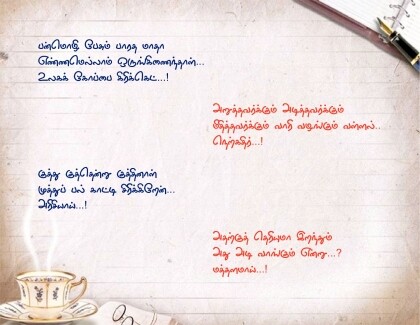 பன்மொழி பேசும் பாரத மாதா
எண்ணமெல்லாம் ஒருங்கிணைந்தாள்...
உலகக் கோப்பை கிரிக்கெட்...!
அறுத்தவர்க்கும் அடித்தவர்க்கும்
இத்தவர்க்கும் வாரி வழங்கும் வள்ளல்..
நெற்கதிர்...!
குத்து குத்தென்று குத்தினாள்
முத்துப் பல் காட்டி சிரிக்கிறேன்...
அரிசியாய்...!
அதற்குத் தெரியுமா இறந்தும்
அது அடி வாங்கும் என்று...?
மத்தளமாய்...!